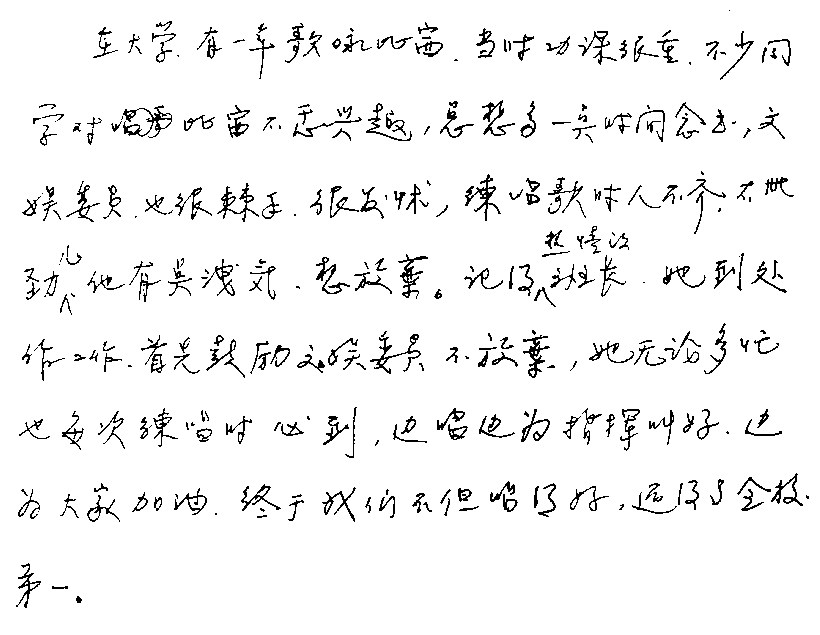 在大学.有一年歌咏比赛.当时功课很重.不少同
学对唱歌比赛不感兴趣,总想多一点时间念书,文
娱委员.也很棘手.很发愁,练唱歌时人不齐,不带
劲儿他有点泄气.想放棄。记得热情的班长.她到处
作工作.首先鼓励文娱委员不放棄,她无论多忙
也每次練唱时必到,边唱边为指挥叫好.边
为大家加油.终于我们不但唱得好,还得了全校
第一.